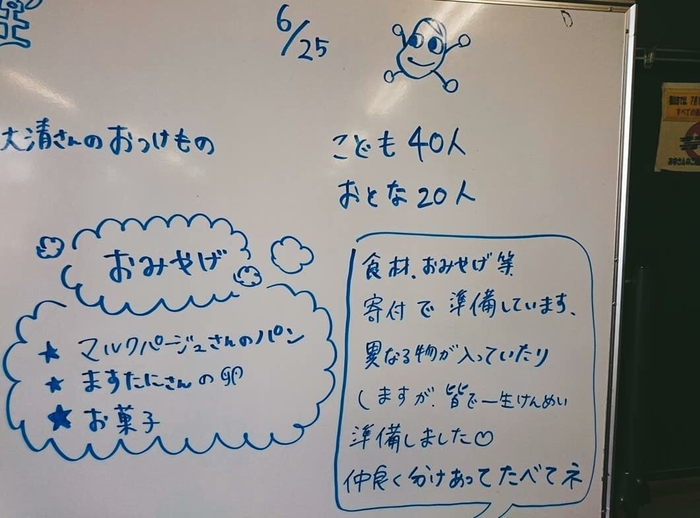 6/25
大清さんのおつけもの
こども 40人
おとな 20人
おみやげ
★ マルクパージュさんのパン
★ ますたにさんの卵
★ お菓子
食材、おみやげ等
寄付で準備しています、
異なる物が入っていたり
しますが、皆で一生けんめい
準備しました♡
仲良く分けあってたべてネ